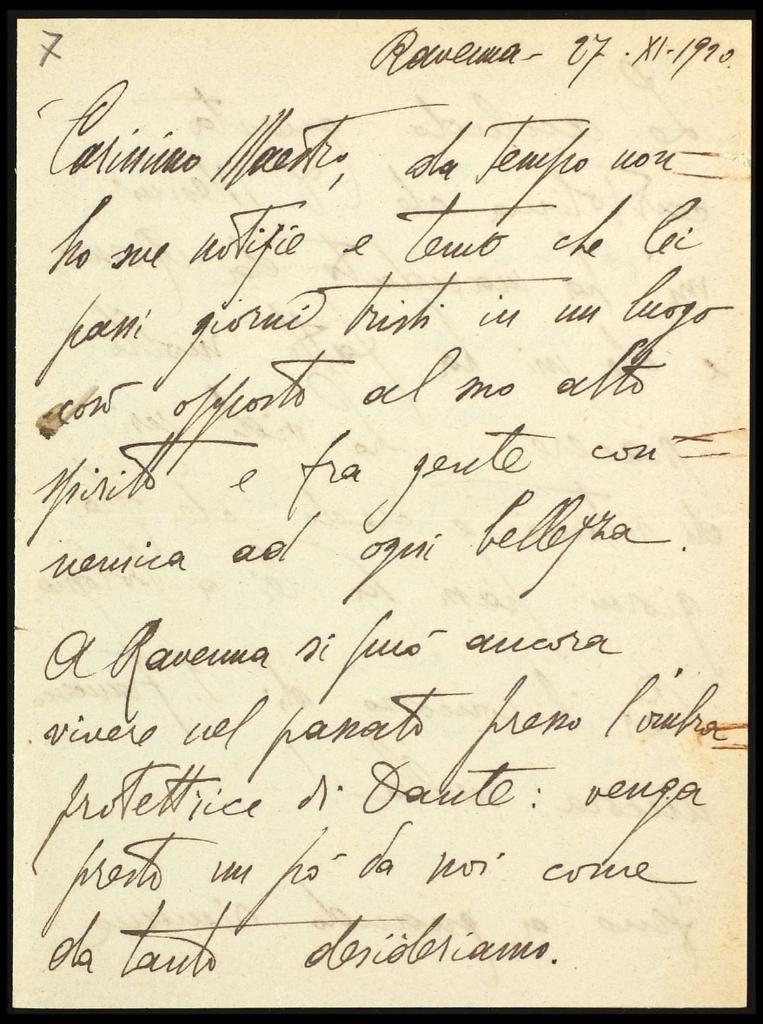 7
Ravenna - 27 - XI - 1920.
Carissimo Maestro, da tempo non
ho sue notizie e temo che lei
passi giorni tristi in un luogo
così opposto al suo alto
spirito e fra gente così
nemica ad ogni bellezza.
A Ravenna si può ancora
vivere nel passato presso l'ombra
protettrice di Dante: venga
presto un pó da noi come
da tanto desideriamo.